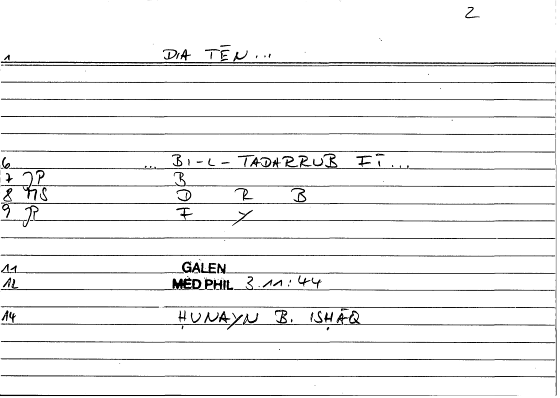 2
1 DIA TĒN...
6 ... BI-L-TADARRUB FĪ...
7 JP B
8 MS D R B
9 JP F Y
11 GALEN
12 MED PHIL 3.11:44
14 ḤUNAYN B. ISḤĀQ